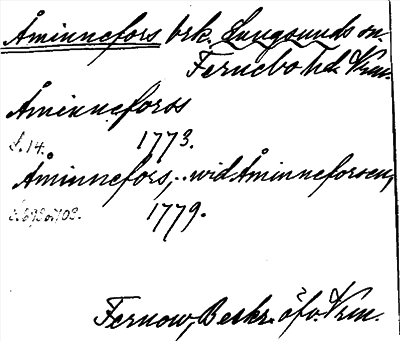 Åminnefors brk. Lungsunds sn.
Fernebo hd. Vrm.
Åminneforss
s. 14. 1773.
Åminnefors, .. wid Åminneforsen,
1779.
Fernow, Beskr. öfv. Vrm.